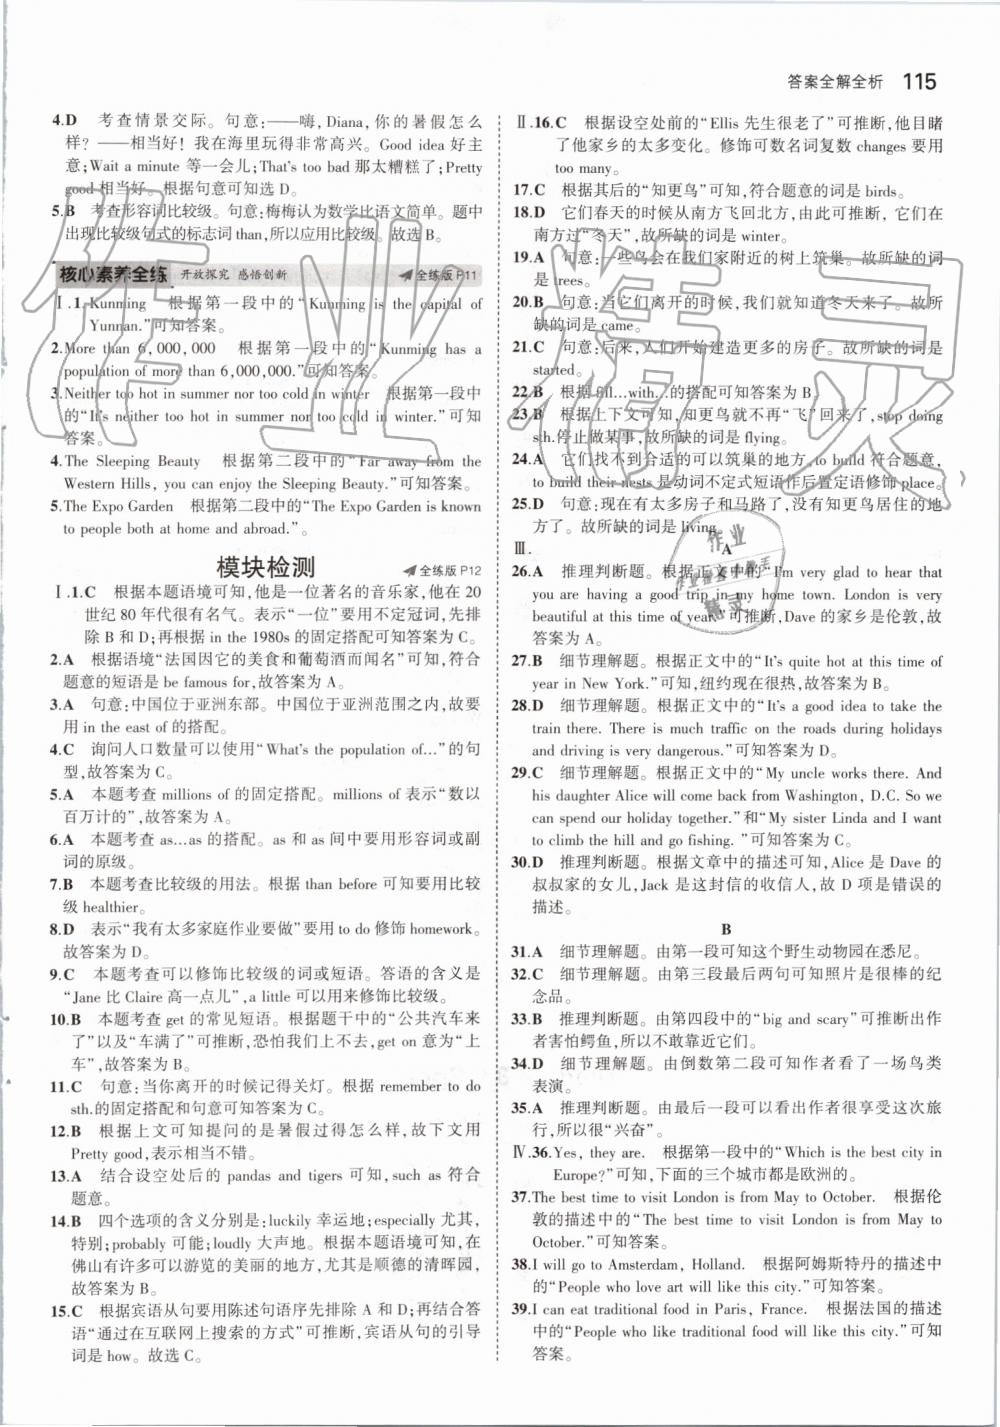 答案全解全析 115
4.D 考查情景交际。句意:——嗨,Diana,你的暑假怎么
样? ——相当好! 我在海里玩得非常高兴。Good idea 好主
意;Wait a minute 等一会儿;That's too bad 那太糟糕了;Pretty
good 相当好。根据句意可知选 D。
5.B 考查形容词比较级。句意:梅梅认为数学比语文简单。题中
出现比较级句式的标志词 than,所以应用比较级。故选 B。
核心素养全练 开放探究 感悟创新 全练版 P11
Ⅰ.1.Kunming 根据第一段中的“Kunming is the capital of
Yunnan.”可知答案。
2.More than 6,000,000 根据第一段中的“Kunming has a
population of more than 6,000,000.”可知答案。
3.Neither too hot in summer nor too cold in winter 根据第一段中
的“It's neither too hot in summer nor too cold in winter.”可知
答案。
4.The Sleeping Beauty 根据第二段中的“Far away from the
Western Hills, you can enjoy the Sleeping Beauty.”可知答案。
5.The Expo Garden 根据第二段中的“The Expo Garden is known
to people both at home and abroad.”。
模块检测 全练版 P12
Ⅰ.1.C 根据本题语境可知,他是一位著名的音乐家,他在 20
世纪 80 年代很有名气。表示“一位”要用不定冠词,先排
除 B 和 D;再根据 in the 1980s 的固定搭配可知答案为 C。
2.A 根据语境“法国因它的美食和葡萄酒而闻名”可知,符合
题意的短语是 be famous for,故答案为 A。
3.A 句意:中国位于亚洲东部。中国位于亚洲范围之内,故要
用 in the east of 的搭配。
4.C 询问人口数量可以使用“What's the population of…”的句
型,故答案为 C。
5.A 本题考查 millions of 的固定搭配。millions of 表示“数以
百万计的”,故答案为 A。
6.A 本题考查 as…as 的搭配。as 和 as 间中要用形容词或副
词的原级。
7.B 本题考查比较级的用法。根据 than before 可知要用比较
级 healthier。
8.D 表示“我有太多家庭作业要做”要用 to do 修饰 homework。
故答案为 D。
9.C 本题考查可以修饰比较级的词或短语。答语的含义是
“Jane 比 Claire 高一点儿”,a little 可以用来修饰比较级。
10.B 本题考查 get 的常见短语。根据题干中的“公共汽车来
了”以及“车满了”可推断,恐怕我们上不去了,get on 意为“上
车”,故答案为 B。
11.C 句意:当你离开的时候记得关灯。根据 remember to do
sth.的固定搭配和句意可知答案为 C。
12.B 根据上文可知提问的是暑假过得怎么样,故下文用
Pretty good,表示相当不错。
13.A 结合设空处后的 pandas and tigers 可知,such as 符合
题意。
14.B 四个选项的含义分别是:luckily 幸运地;especially 尤其,
特别;probably 可能;loudly 大声地。根据本题语境可知,在
佛山有许多可以游览的美丽的地方,尤其是顺德的清晖园,
故答案为 B。
15.C 根据宾语从句要用陈述句语序先排除 A 和 D;再结合答
语“通过在互联网上搜索的方式”可推断,宾语从句的引导
词是 how。故选 C。
Ⅱ.16.C 根据设空处前的“Ellis 先生很老了”可推断,他目睹
了他家乡的太多变化。修饰可数名词复数 changes 要用
too many。
17.C 根据其后的“知更鸟”可知,符合题意的词是 birds。
18.D 它们春天的时候从南方飞回北方,由此可推断, 它们在
南方度过“冬天”,故所缺的词是 winter。
19.A 句意:一些鸟会在我们家附近的树上筑巢。故所缺的词
是 trees。
20.B 句意:当它们离开的时候,我们就知道冬天来了。故所
缺的词是 came。
21.C 句意:后来,人们开始建造更多的房子。故所缺的词是
started。
22.B 根据 fill…with…的搭配可知答案为 B。
23.B 根据上下文可知,知更鸟就不再“飞”回来了,stop doing
sth.停止做某事,故所缺的词是 flying。
24.A 它们找不到合适的可以筑巢的地方,to build 符合题意,
to build their nests 是动词不定式短语作后置定语修饰 place。
25.D 句意:现在有太多房子和马路了,没有知更鸟居住的地
方了。故所缺的词是 living。
Ⅲ. A
26.A 推理判断题。根据正文中的“I'm very glad to hear that
you are having a good trip in my home town. London is very
beautiful at this time of year.”可推断,Dave 的家乡是伦敦,故
答案为 A。
27.B 细节理解题。根据正文中的“It's quite hot at this time of
year in New York.”可知,纽约现在很热。故答案为 B。
28.D 细节理解题。根据正文中的“It's a good idea to take the
train there. There is much traffic on the roads during holidays
and driving is very dangerous.”可知答案为 D。
29.C 细节理解题。根据正文中的“My uncle works there. And
his daughter Alice will come back from Washington, D.C. So we
can spend our holiday together.”和“My sister Linda and I want
to climb the hill and go fishing. ”可知答案为 C。
30.D 推理判断题。根据文章中的描述可知,Alice 是 Dave 的
叔叔家的女儿,Jack 是这封信的收信人,故 D 项是错误的
描述。
B
31.A 细节理解题。由第一段可知这个野生动物园在悉尼。
32.C 细节理解题。由第三段最后两句可知照片是很棒的纪
念品。
33.B 推理判断题。由第四段中的“big and scary”可推断出作
者害怕鳄鱼,所以不敢靠近它们。
34.D 细节理解题。由倒数第二段可知作者看了一场鸟类
表演。
35.A 推理判断题。由最后一段可以看出作者很享受这次旅
行,所以很“兴奋”。
Ⅳ.36.Yes, they are. 根据第一段中的“Which is the best city in
Europe?”可知,下面的三个城市都是欧洲的。
37.The best time to visit London is from May to October. 根据伦
敦的描述中的“The best time to visit London is from May to
October.”可知答案。
38.I will go to Amsterdam, Holland. 根据阿姆斯特丹的描述中
的“People who love art will like this city.”可知答案。
39.I can eat traditional food in Paris, France. 根据法国的描述
中的“People who like traditional food will like this city.”可知
答案。
作业精灵